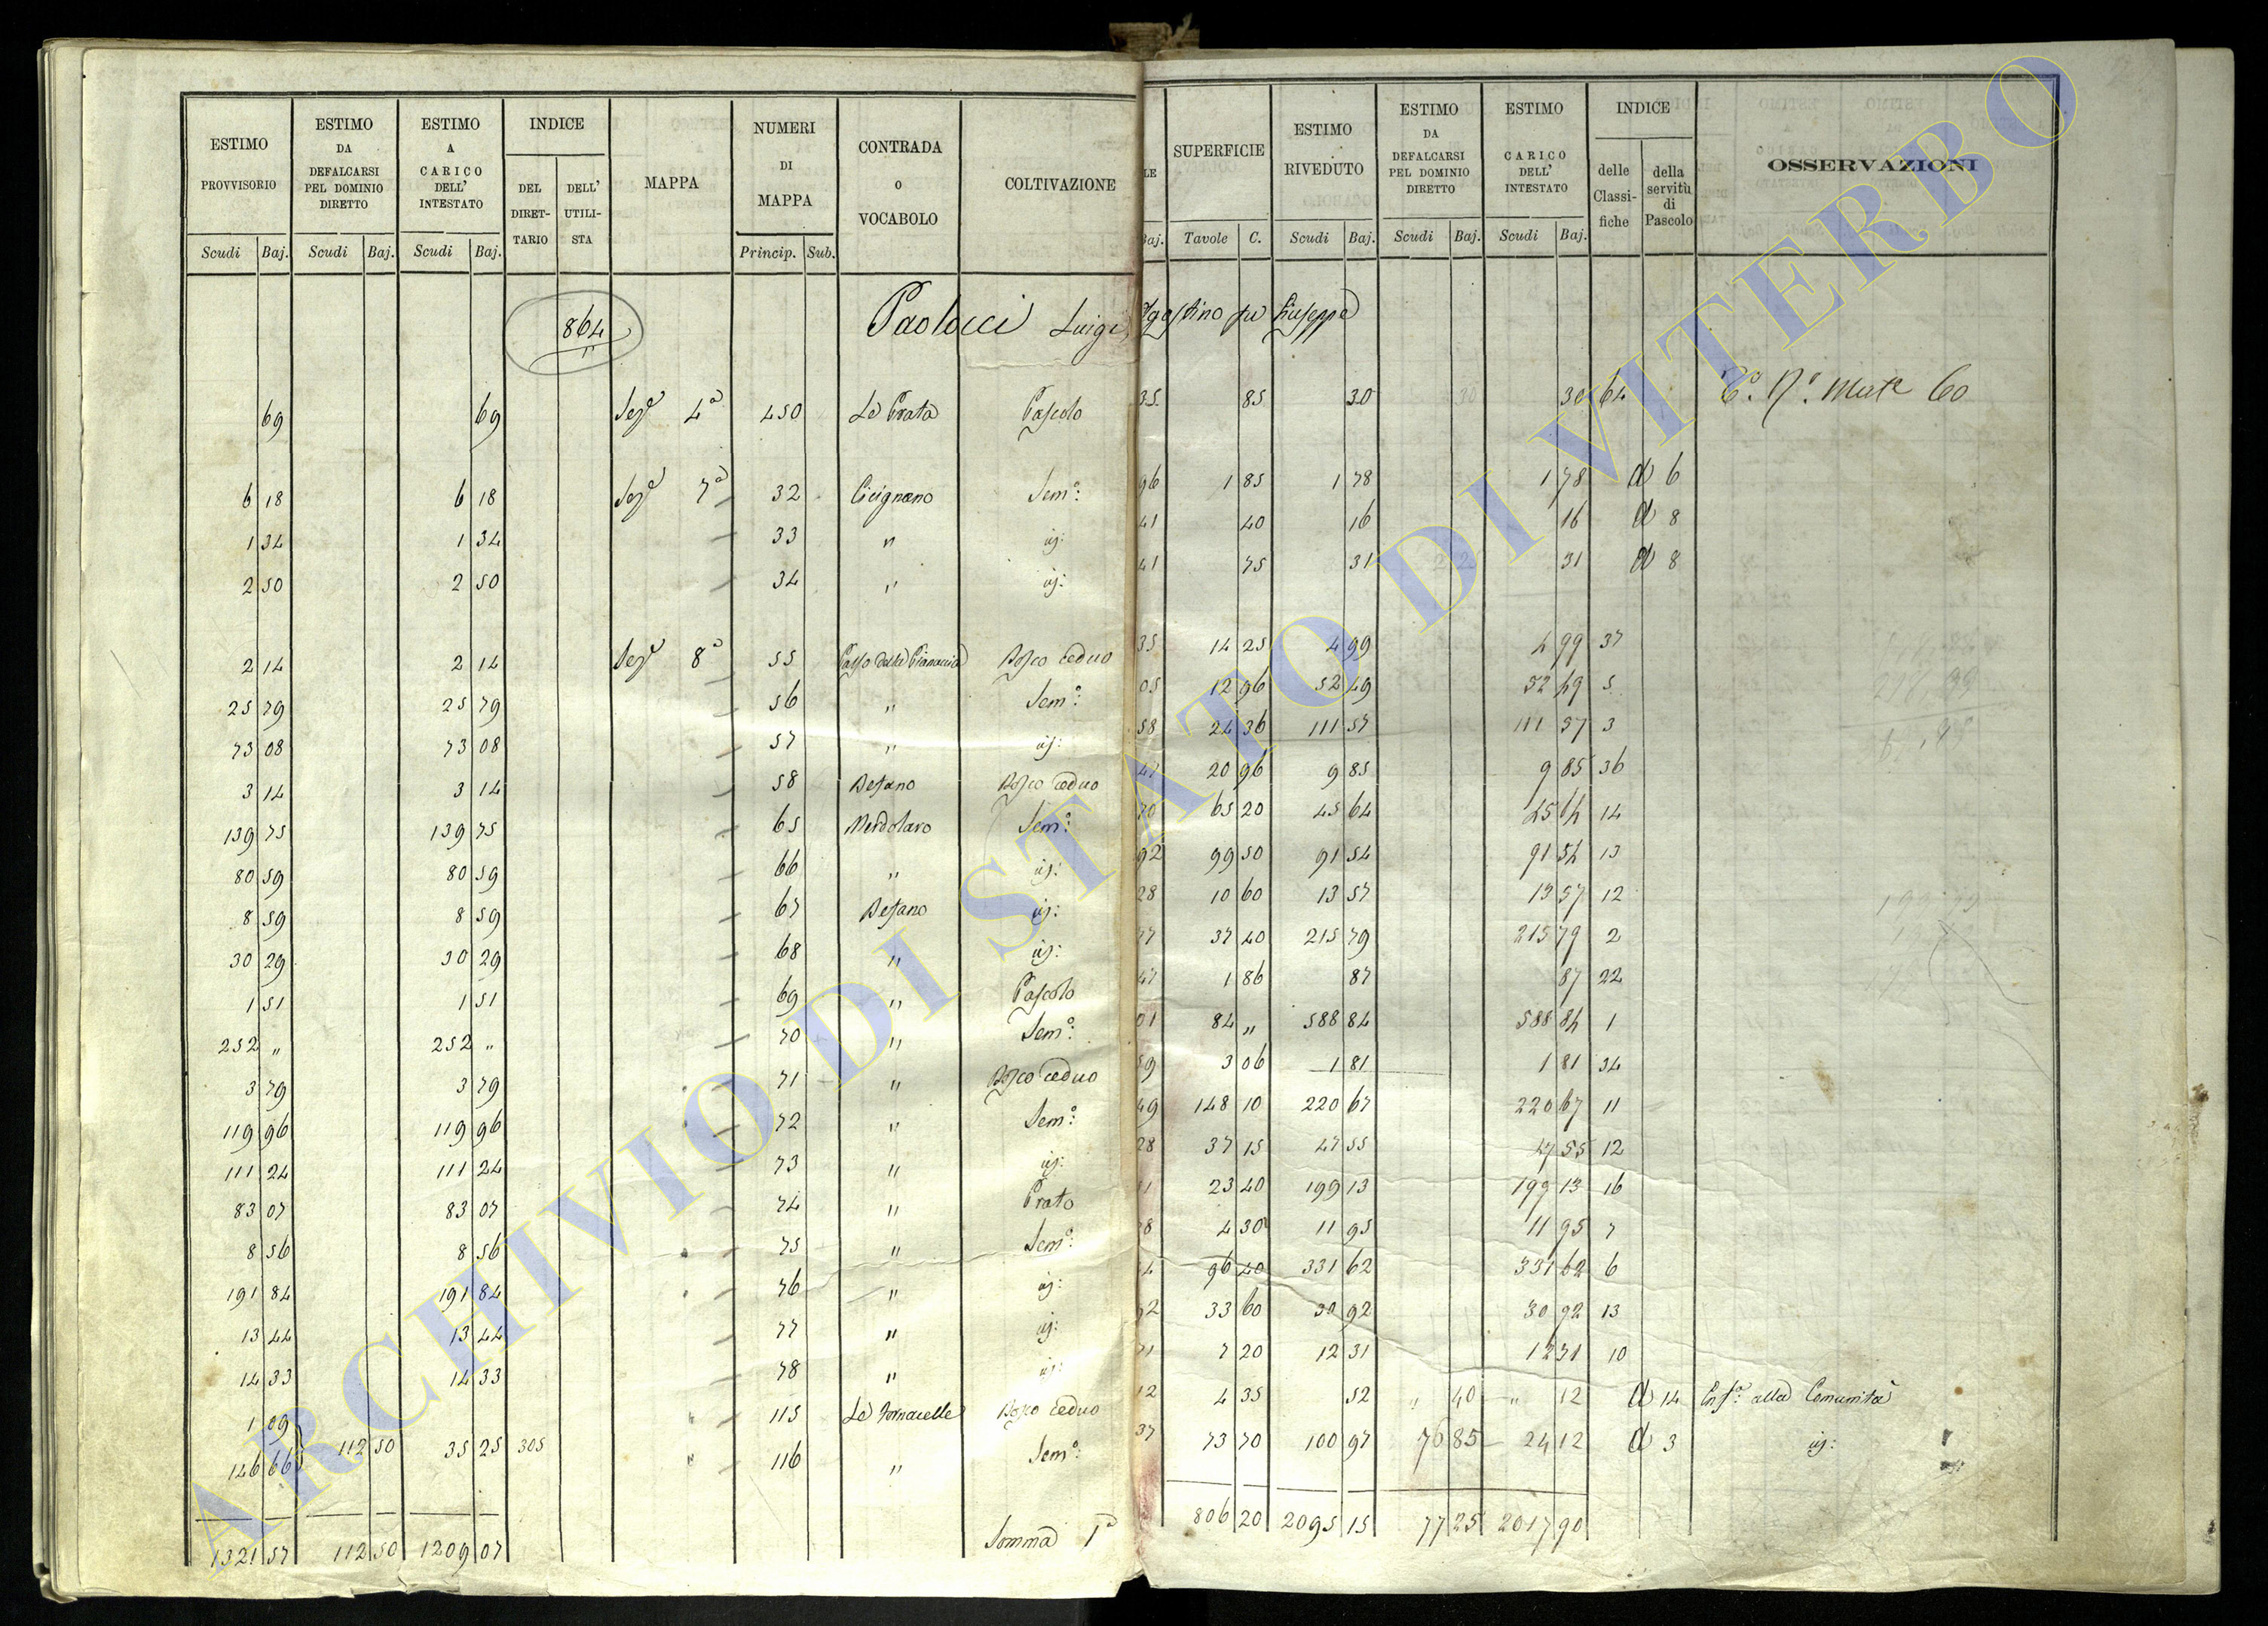 ESTIMO PROVVISORIO
ESTIMO DA DEFALCARSI PEL DOMINIO DIRETTO
ESTIMO A CARICO DELL' INTESTATO
INDICE
DEL DIRETTARIO
DELL' UTILISTA
MAPPA
NUMERI DI MAPPA
CONTRADA O VOCABOLO
COLTIVAZIONE
Scudi Baj. Scudi Baj. Scudi Baj. Princip. Sub.
LE
SUPERFICIE
ESTIMO RIVEDUTO
ESTIMO DA DEFALCARSI PEL DOMINIO DIRETTO
ESTIMO CARICO DELL' INTESTATO
INDICE
delle Classifiche
della servitù di Pascolo
OSSERVAZIONI
Baj. Tavole C. Scudi Baj. Scudi Baj. Scudi Baj.
864 Paolucci Luigi Agostino fu Giuseppe
69 69 Sez.e 4a 450 Le Prata Pascolo 35 85 30 30 30 64 60
6 18 6 18 Sez.e 7a 32 Cicignano Sem.o: 96 1 85 1 78 1 78 d 6
1 34 1 34 33 " id: 41 40 16 16 d 8
2 50 2 50 34 " id: 41 75 31 31 d 8
2 14 2 14 Sez.e 8a 55 Bosco ceduo 35 14 25 4 99 4 99 37
25 79 25 79 56 " Sem.o: 05 12 96 52 49 52 49 5
73 08 73 08 57 " id: 58 24 36 111 57 111 57 3
3 14 3 14 58 Befano Bosco ceduo 47 20 96 9 85 9 85 36
139 75 139 75 65 Merdolaro Sem.o: 70 65 20 45 64 45 64 14
80 59 80 59 66 " id: 92 99 50 91 54 91 54 13
8 59 8 59 67 Befano id: 28 10 60 13 57 13 57 12
30 29 30 29 68 " id: 77 37 40 215 79 215 79 2
1 51 1 51 69 " Pascolo 47 1 86 87 87 22
252 " 252 " 70 " Sem.o: 01 84 " 588 84 588 84 1
3 79 3 79 71 " Bosco ceduo 59 3 06 1 81 1 81 34
119 96 119 96 72 " Sem.o: 49 148 10 220 67 220 67 11
111 24 111 24 73 " id: 28 37 15 47 55 47 55 12
83 07 83 07 74 " Prato 23 40 199 13 199 13 16
8 56 8 56 75 " Sem.o: 8 4 30 11 95 11 95 7
191 84 191 84 76 " id: 4 96 40 331 62 331 62 6
13 44 13 44 77 " id: 92 33 60 30 92 30 92 13
14 33 14 33 78 " id: 71 7 20 12 31 12 31 10
1 09 115 Le Fornacelle Bosco ceduo 12 4 35 52 " 40 " 12 d 14 Enf.a alla Comunità
146 66 112 50 35 25 305 116 " Sem.o: 37 73 70 100 97 76 85 24 12 d 3 id:
1321 57 112 50 1209 07 Somma 1a 806 20 2095 15 77 25 2017 90
ARCHIVIO DI STATO DI VITERBO